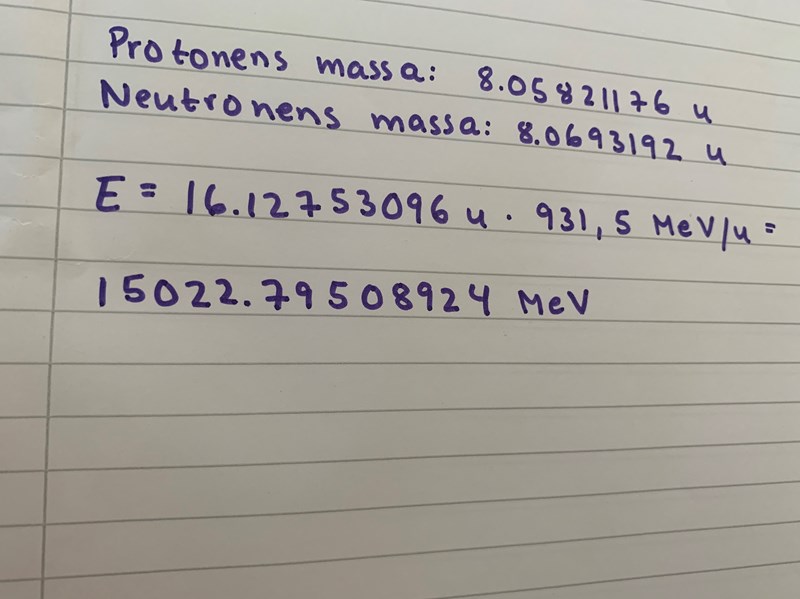 Protonens massa: 8.05821176 u
Neutronens massa: 8.0693192 u
E = 16.12753096 u · 931,5 MeV/u =
15022.79508924 MeV